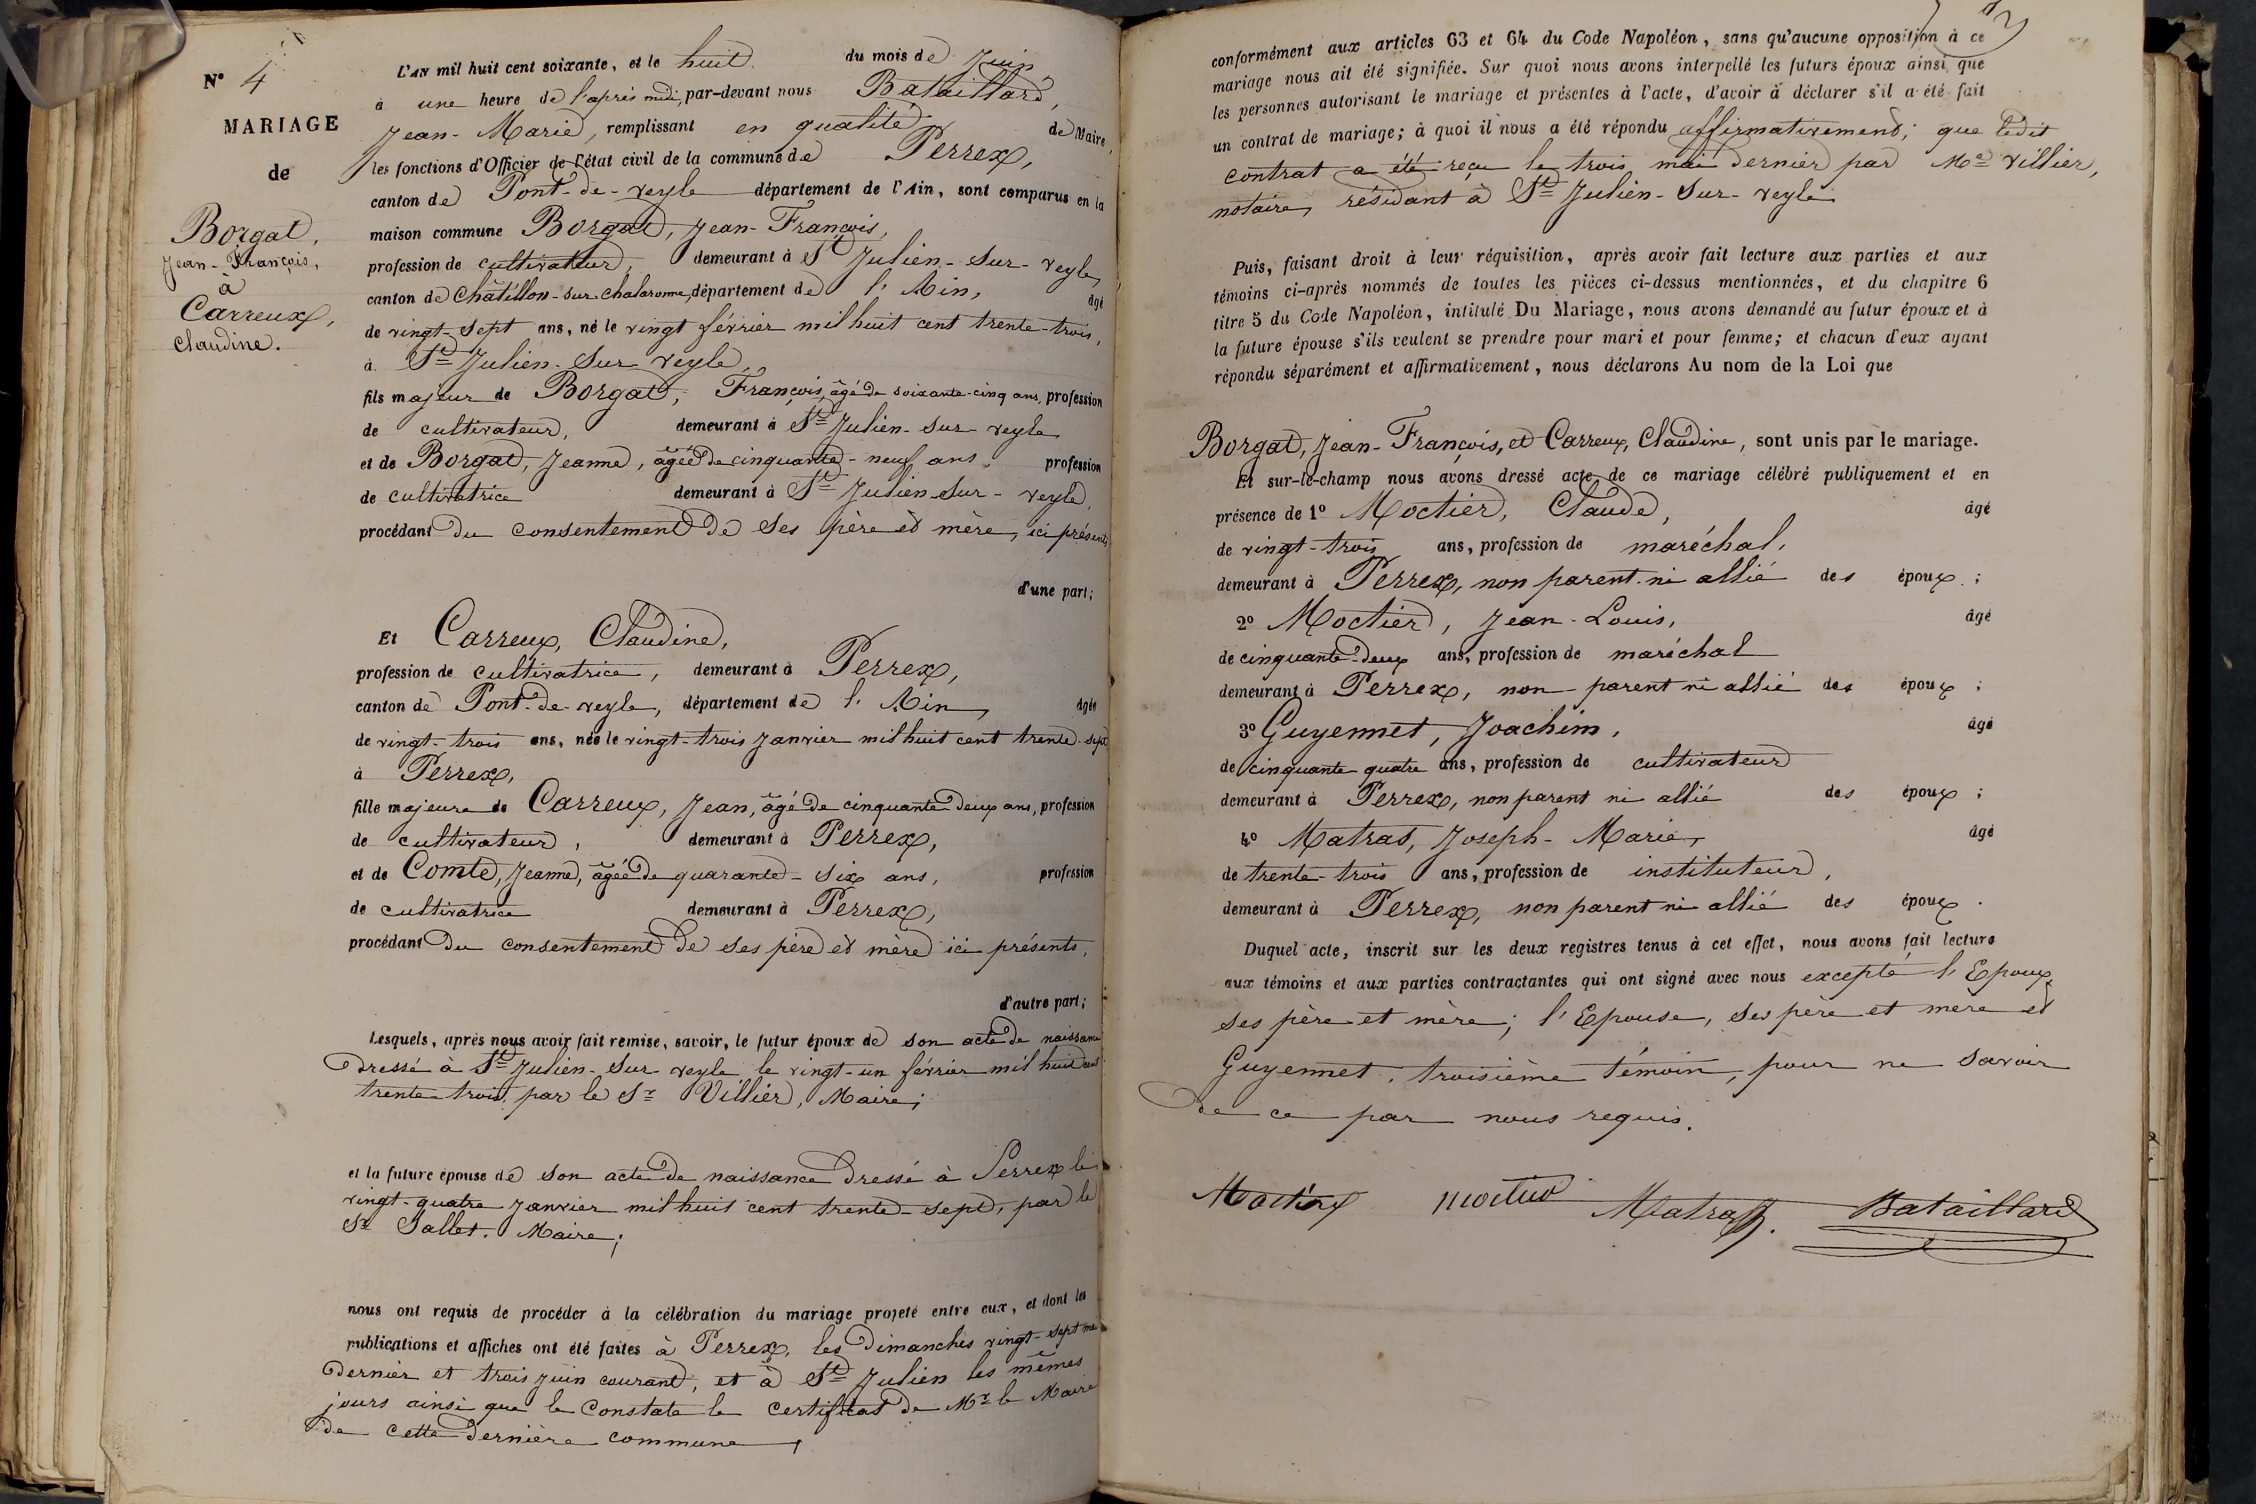 N° 4
MARIAGE
de
Borgat,
Jean-François,
à
Carreux,
Claudine.
L'AN mil huit cent soixante, et le huit du mois de Juin
à une heure de l'après midi, par-devant nous Bataillard,
Jean-Marie, remplissant en qualité de Maire,
les fonctions d'Officier de l'état civil de la commune de Perrex,
canton de Pont-de-veyle département de l'Ain, sont comparus en la
maison commune Borgat, Jean-François,
profession de cultivateur, demeurant à St Julien-sur-veyle,
canton de Châtillon-sur-chalaronne, département de l'Ain, âgé
de vingt-sept ans, né le vingt février mil huit cent trente-trois,
à St Julien-sur veyle,
fils majeur de Borgat, François, âgé de soixante-cinq ans, profession
de cultivateur, demeurant à St Julien-sur veyle
et de Borgat, Jeanne, âgée de cinquante-neuf ans, profession
de cultivatrice demeurant à St Julien-sur-veyle,
procédant du consentement de ses père et mère, ici présents
d'une part;
Et Carreux, Claudine,
profession de cultivatrice, demeurant à Perrex,
canton de Pont-de-veyle, département de l'Ain, âgée
de vingt-trois ans, née le vingt-trois Janvier mil huit cent trente-sept
à Perrex,
fille majeure de Carreux, Jean, âgé de cinquante deux ans, profession
de cultivateur, demeurant à Perrex,
et de Comte, Jeanne, âgée de quarante-six ans, profession
de cultivatrice demeurant à Perrex,
procédant du consentement de ses père et mère ici présents,
d'autre part;
Lesquels, après nous avoir fait remise, savoir, le futur époux de son acte de naissance
dressé à St Julien-sur veyle le vingt-un février mil huit cent
trente-trois, par le Sr Villier, Maire;
et la future épouse de son acte de naissance dressé à Perrex le
vingt-quatre Janvier mil huit cent trente-sept, par le
Sr Sallet, Maire;
nous ont requis de procéder à la célébration du mariage projeté entre eux, et dont les
publications et affiches ont été faites à Perrex, les dimanches vingt-sept mai
dernier et trois juin courant, et à St Julien les mêmes
jours ainsi que le constate le certificat de Mr le Maire
de cette dernière commune,
conformément aux articles 63 et 64 du Code Napoléon, sans qu'aucune opposition à ce
mariage nous ait été signifiée. Sur quoi nous avons interpellé les futurs époux ainsi que
les personnes autorisant le mariage et présentes à l'acte, d'avoir à déclarer s'il a été fait
un contrat de mariage; à quoi il nous a été répondu affirmativement; que ledit
contrat a été reçu le trois mai dernier par Me Villier,
notaire, résidant à St Julien-sur-veyle
Puis, faisant droit à leur réquisition, après avoir fait lecture aux parties et aux
témoins ci-après nommés de toutes les pièces ci-dessus mentionnées, et du chapitre 6
titre 5 du Code Napoléon, intitulé Du Mariage, nous avons demandé au futur époux et à
la future épouse s'ils veulent se prendre pour mari et pour femme; et chacun d'eux ayant
répondu séparément et affirmativement, nous déclarons Au nom de la Loi que
Borgat, Jean-François, et Carreux, Claudine, sont unis par le mariage.
Et sur-le-champ nous avons dressé acte de ce mariage célébré publiquement et en
présence de 1° Moctier, Claude, âgé
de vingt-trois ans, profession de maréchal,
demeurant à Perrex, non parent ni allié des époux;
2° Moctier, Jean-Louis, âgé
de cinquante-deux ans, profession de maréchal
demeurant à Perrex, non parent ni allié des époux;
3° Guyennet, Joachim, âgé
de cinquante quatre ans, profession de cultivateur
demeurant à Perrex, non parent ni allié des époux;
4° Matras, Joseph-Marie, âgé
de trente-trois ans, profession de instituteur,
demeurant à Perrex, non parent ni allié des époux.
Duquel acte, inscrit sur les deux registres tenus à cet effet, nous avons fait lecture
aux témoins et aux parties contractantes qui ont signé avec nous excepté l'Epoux,
ses père et mère; l'Epouse, ses père et mère et
Guyennet, troisième témoin, pour ne savoir
de ce par nous requis.
Moctier Moctier Matras. Bataillard